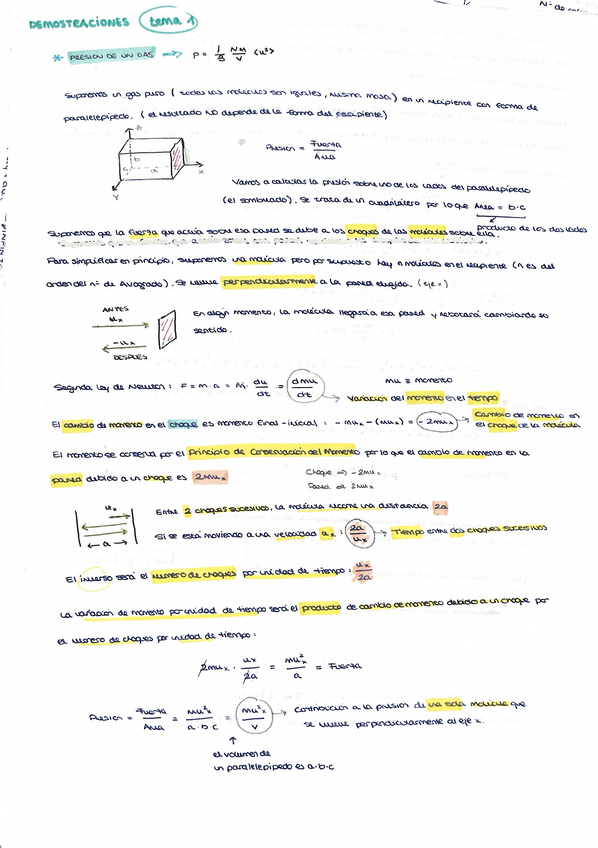 Nº de
DEMOSTRACIONES tema 1
* PRESION DE UN GAS ⇒ P = 1/3 NM/V <u²>
Suponemos un gas puro (todas las moléculas son iguales, misma masa) en un recipiente con forma de
paralelepípedo. (el resultado NO depende de la forma del recipiente)
z
b
c
a
x
Y
Presión = Fuerza/Area
Vamos a calcular la presión sobre uno de los lados del paralelepípedo
(el sombreado). Se trata de un cuadrilátero por lo que Area = b·c
producto de los dos lados
Suponemos que la fuerza que actúa sobre esa pared se debe a los choques de las moléculas sobre ella.
Para simplificar en principio, suponemos una molécula pero por supuesto hay n moléculas en el recipiente (n es del
orden del nº de Avogadro). Se mueve perpendicularmente a la pared elegida. (eje x)
ANTES
ux
-ux
DESPUÉS
En algún momento, la molécula llegará a esa pared y rebotará cambiando su
sentido.
Segunda ley de Newton: F = m·a = m· du/dt = dmu/dt
mu ≡ momento
→ Variación del momento en el tiempo
El cambio de momento en el choque es momento final - inicial: -mux - (mux) = -2mux → Cambio de momento en
el choque de la molécula
El momento se conserva por el Principio de Conservación del Momento por lo que el cambio de momento en la
pared debido a un choque es 2mux
Choque ⇒ -2mux
Pared ⇒ 2mux
ux
a
Entre 2 choques sucesivos, la molécula recorre una distancia 2a
Si se está moviendo a una velocidad ux: 2a/ux → Tiempo entre dos choques sucesivos
El inverso será el número de choques por unidad de tiempo: ux/2a
La variación de momento por unidad de tiempo será el producto de cambio de momento debido a un choque por
el número de choques por unidad de tiempo:
2mux · ux/2a = mux²/a = Fuerza
Presión = Fuerza/Area = mu²x/a·b·c = mu²x/V → contribución a la presión de una sola molécula que
se mueve perpendicularmente al eje x.
↑
el volumen de
un paralelepípedo es a·b·c